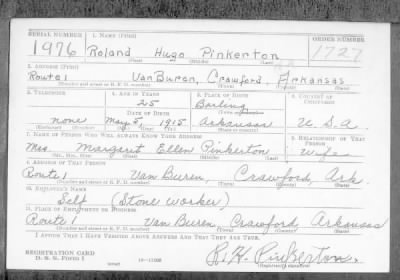 SERIAL NUMBER 1. NAME (Print) ORDER NUMBER
1976 Roland Hugo Pinkerton 1727
(First) (Middle) (Last)
2. ADDRESS (Print)
Route 1 Van Buren, Crawford, Arkansas
(Number and street or R. F. D. number) (Town) (County) (State)
3. TELEPHONE 4. AGE IN YEARS 5. PLACE OF BIRTH 6. COUNTRY OF CITIZENSHIP
25 Barling
DATE OF BIRTH (Town or county)
none May 5, 1915 Arkansas U. S. A.
(Exchange) (Number) (Mo.) (Day) (Yr.) (State or country)
7. NAME OF PERSON WHO WILL ALWAYS KNOW YOUR ADDRESS 8. RELATIONSHIP OF THAT PERSON
Mrs. Margaret Ellen Pinkerton Wife
(Mr., Mrs., Miss) (First) (Middle) (Last)
9. ADDRESS OF THAT PERSON
Route 1 Van Buren, Crawford, Ark.
(Number and street or R. F. D. number) (Town) (County) (State)
10. EMPLOYER'S NAME
Self (Stone worker)
11. PLACE OF EMPLOYMENT OR BUSINESS
Route 1 Van Buren, Crawford Arkansas
(Number and street or R. F. D. number) (Town) (County) (State)
I AFFIRM THAT I HAVE VERIFIED ABOVE ANSWERS AND THAT THEY ARE TRUE.
REGISTRATION CARD
D. S. S. FORM 1
R. H. Pinkerton.
(Registrant's signature)